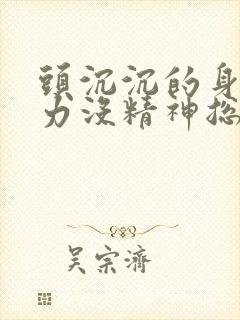 頭沉沉的身
力沒精神總
吳宗濟